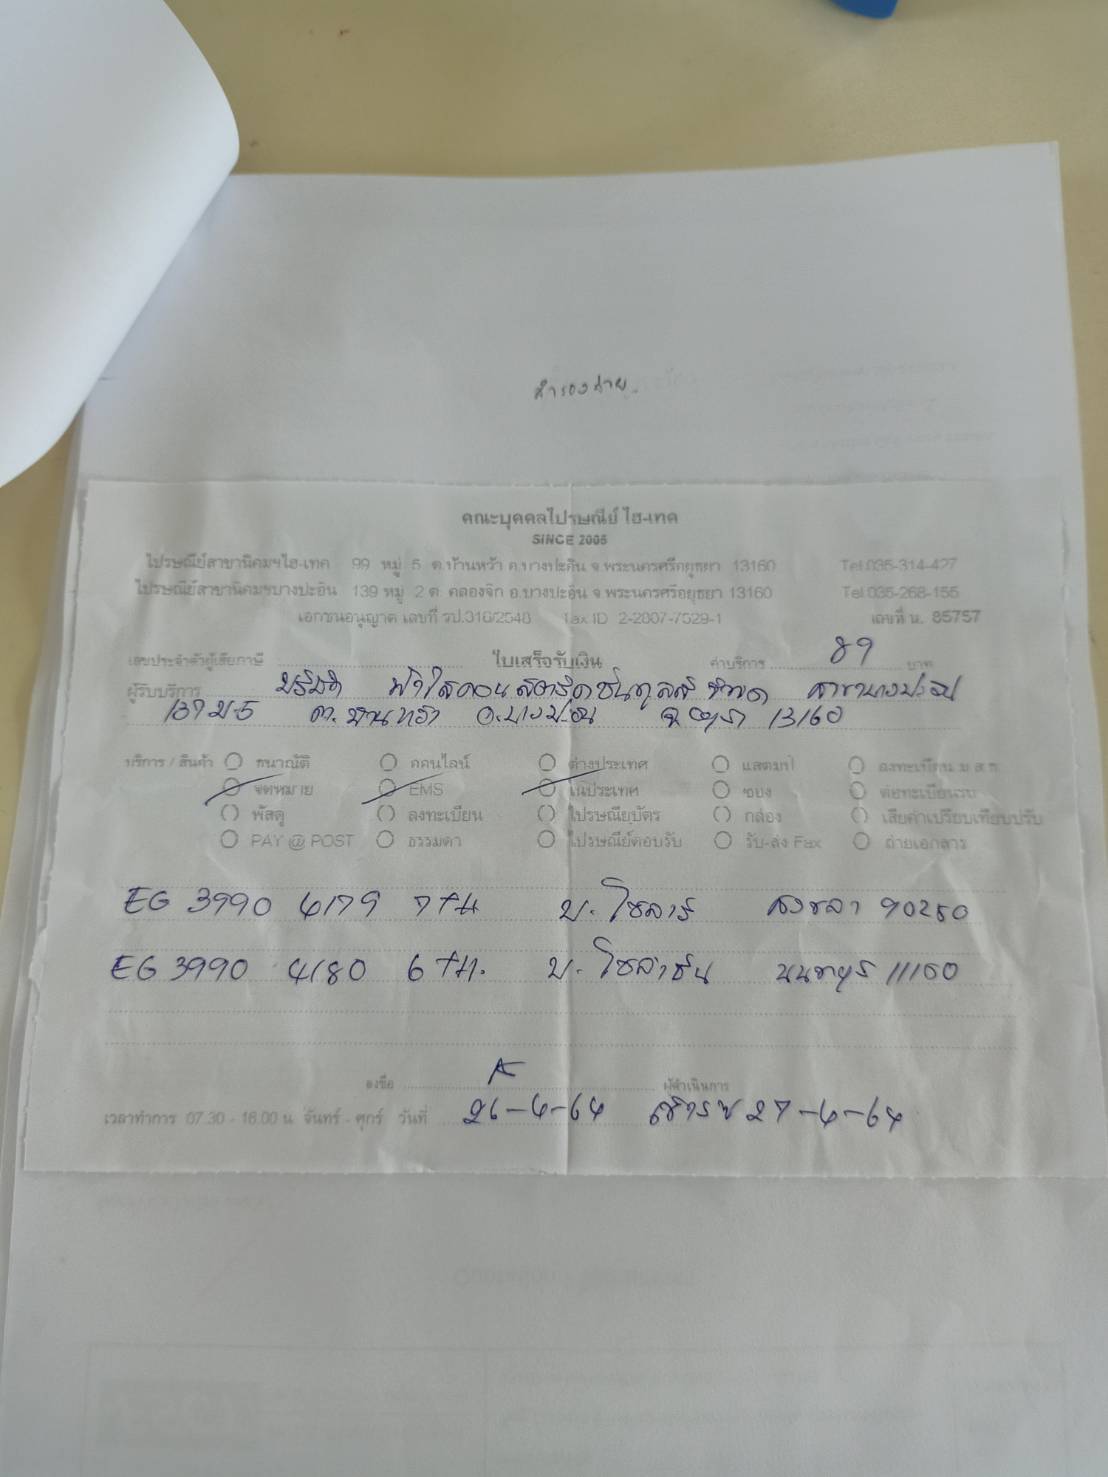 สำรองจ่าย
คณะบุคคลไปรษณีย์ ไฮ-เทค
SINCE 2005
ไปรษณีย์สาขานิคมฯไฮ-เทค 99 หมู่ 5 ต.บ้านหว้า อ.บางปะอิน จ.พระนครศรีอยุธยา 13160 Tel.035-314-427
ไปรษณีย์สาขานิคมฯบางปะอิน 139 หมู่ 2 ต. คลองจิก อ.บางปะอิน จ.พระนครศรีอยุธยา 13160 Tel.035-268-155
เอกชนอนุญาต เลขที่ รป.316/2548 Tax ID 2-2007-7529-1 เลขที่ น. 85757
เลขประจำตัวผู้เสียภาษี ใบเสร็จรับเงิน ค่าบริการ 89 บาท
ผู้รับบริการ บริษัท จำกัด สาขาบางปะอิน
139 ม.5 ต.บ้านหว้า อ.บางปะอิน จ.อยุธยา 13160
บริการ / สินค้า ธนาณัติ ออนไลน์ ต่างประเทศ แสตมป์
จดหมาย EMS ในประเทศ ซอง
พัสดุ ลงทะเบียน ไปรษณียบัตร กล่อง เสียค่าเปรียบเทียบปรับ
PAY @ POST ธรรมดา ไปรษณีย์ตอบรับ รับ-ส่ง Fax ถ่ายเอกสาร
EG 3990 4179 7 TH บ. โซลาร์ สงขลา 90250
EG 3990 4180 6 TH. บ. นนทบุรี 11150
ลงชื่อ ผู้ดำเนินการ
เวลาทำการ 07.30 - 16.00 น. จันทร์ - ศุกร์ วันที่ 26-4-64 27-4-64